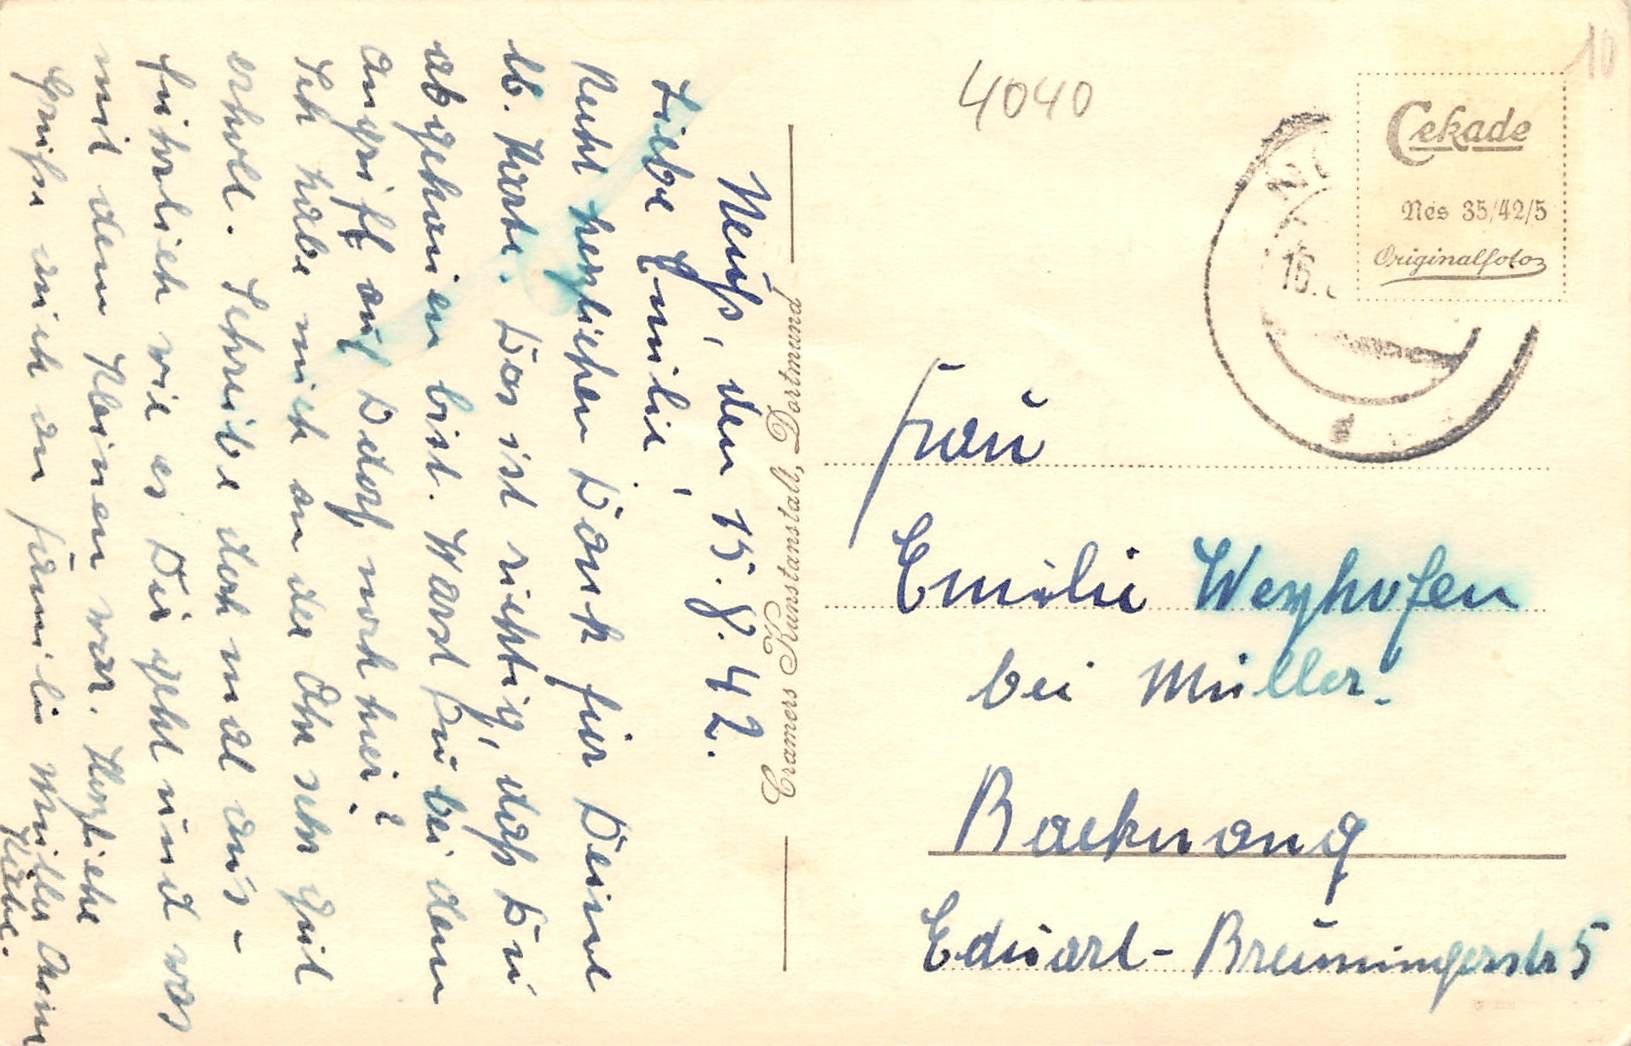 Neuß, den 15.8.42.
Liebe Emilie,
Recht herzlichen Dank für Deine
lb. Karte. Das ist richtig, daß Du
abgehauen bist. Warst Du bei dem
Angriff auf Ddorf noch hier?
Ich habe mich an der See sehr gut
erholt. Schreibe doch mal aus-
führlich wie es Dir geht und was
mit dem Kleinen war. Herzliche
Grüße auch an Familie Müller
4040
10
Cekade
Nés 35/42/5
Originalfoto
16.
Cramers Kunstanstalt, Dortmund
Frau
Emilie Weyhofen
bei Müller.
Backnang
Eduart-Breuningerstr 5